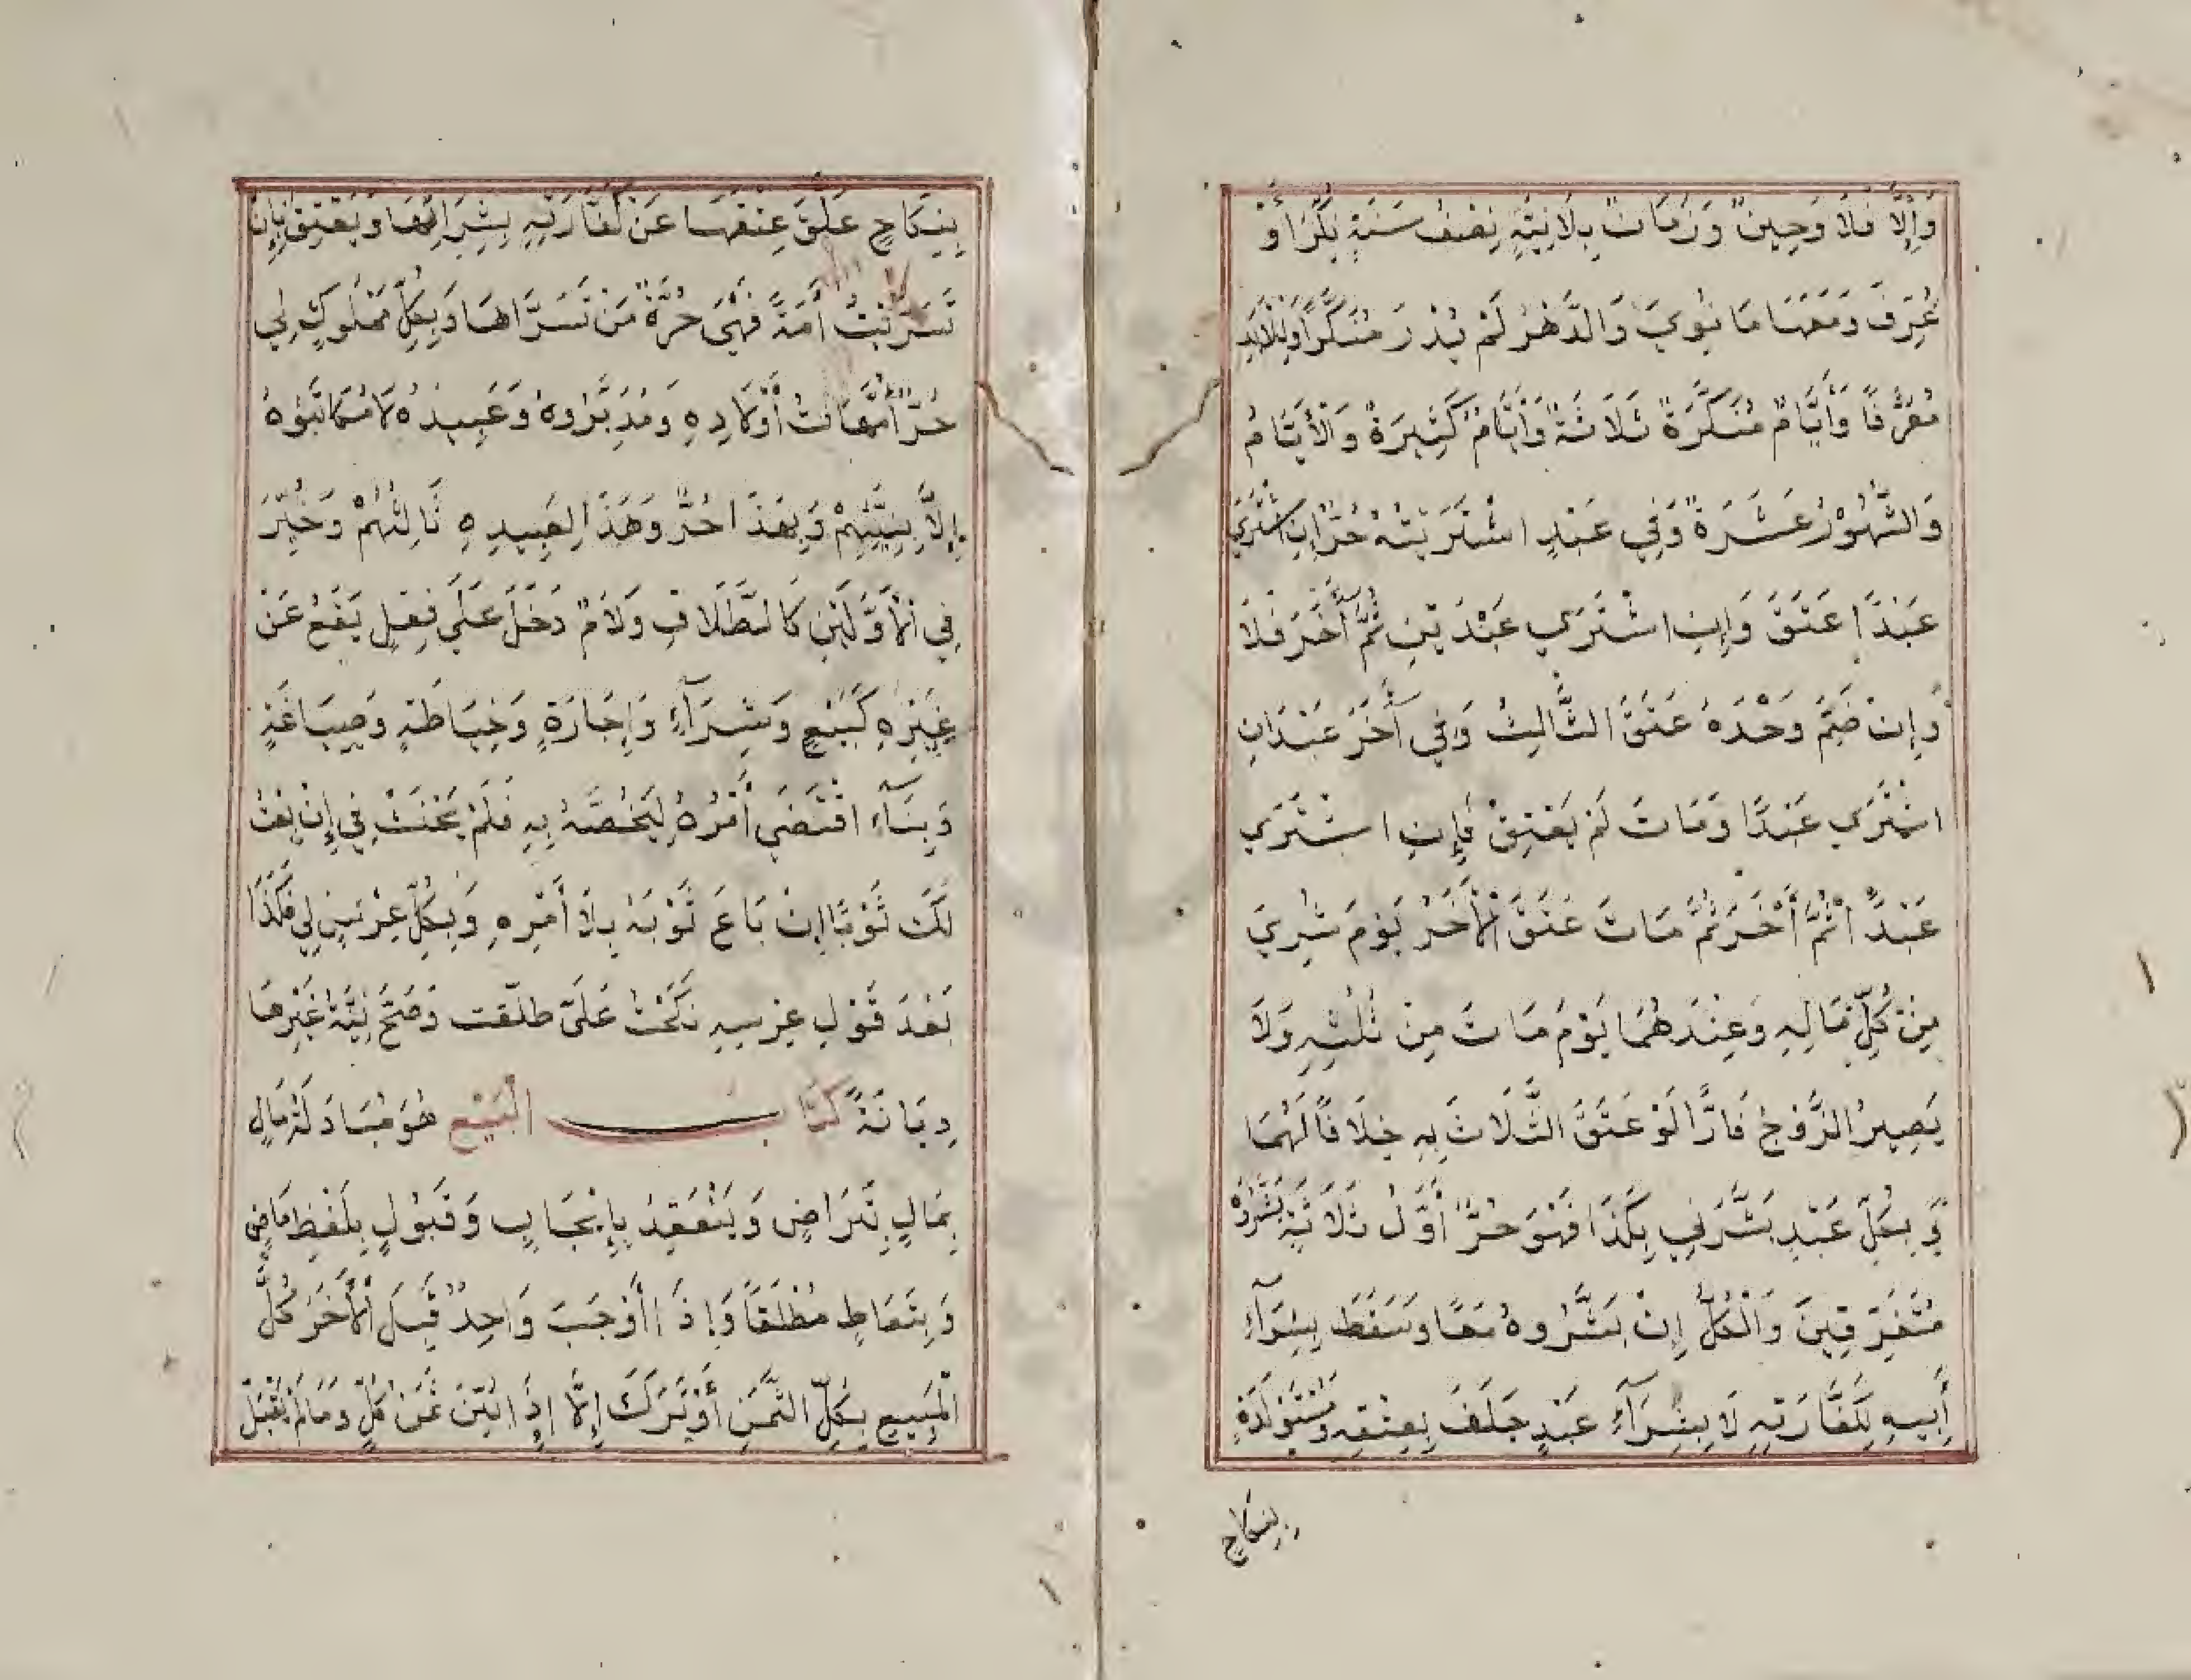 وَإِلَّا فَلَا وَحِينٌ وَزَمَانٌ بِلَا نِيَّةٍ نِصْفُ سَنَةٍ نُكِّرَ أَوْ
عُرِّفَ وَمَعَهَا مَا نُوِيَ وَالدَّهْرُ لَمْ يُدْرَ مُنَكَّرًا وَلِلْأَبَدِ
مُعَرَّفًا وَأَيَّامٌ مُنَكَّرَةٌ ثَلَاثَةٌ وَأَيَّامٌ كَثِيرَةٌ وَالْأَيَّامُ
وَالشُّهُوْرُ عَشَرَةٌ وَفِي عَبْدٍ اشْتَرَيْتُهُ حُرٌّ إِنِ اشْتَرَي
عَبْدًا عَتَقَ وَإِنِ اشْتَرَي عَبْدَيْنِ ثُمَّ آخَرَ فَلَا
وَإِنْ ضَمَّ وَحْدَهُ عَتَقَ الثَّالِثُ وَفِي آخَرُ عَبْدَانِ
اشْتَرَي عَبْدًا وَمَاتَ لَمْ يَعْتِقْ فَإِنِ اشْتَرَي
عَبْدًا ثُمَّ أَخَرَ ثُمَّ مَاتَ عَتَقَ الْأَخَرُ يَوْمَ شُرِيَ
مِنْ كُلِّ مَالِهِ وَعِنْدَهُمَا يَوْمَ مَاتَ مِنْ ثُلُثِهِ وَلَا
يَصِيرُ الزَّوْجُ فَارًّا لَوْ عَتَقَ الثَّلَاثَ بِهِ خِلَافًا لَهُمَا
وَبِكُلِّ عَبْدٍ بَشَّرَنِي بِكَذَا فَهُوَ حُرٌّ أَوَّلُ ثَلَاثَةٍ بَشَّرُوهُ
مُتَفَرِّقِينَ وَالْكُلُّ إِنْ بَشَّرُوهُ مَعًا وَسَقَطَ بِشِرَآءِ
أَبِيهِ لِكَفَّارَتِهِ لَا بِشِرَآءِ عَبْدٍ حَلَفَ بِعِتْقِهِ وَمُسْتَوْلَدَةٍ
بِنِكَاحٍ
بِنِكَاحٍ عَلَّقَ عِتْقَهَا عَنْ كَفَّارَتِهِ بِشِرَائِهَا وَيَعْتِقُ بِإِنْ
تَسَرَّيْتُ أَمَةً فَهِيَ حُرَّةٌ مَنْ تَسَرَّاهَا وَبِكُلِّ مَمْلُوكٍ لِي
حُرٌّ أُمَّهَاتُ أَوْلَادِهِ وَمُدَبَّرُوهُ وَعَبِيدُهُ لَا مُكَاتَبُوهُ
إِلَّا بِنِيَّتِهِمْ وَبِهَذَا حُرٌّ وَهَذَا لِعَبِيدِهِ ثَالِثُهُمْ وَخُيِّرَ
فِي الْأَوَّلَيْنِ كَالطَّلَاقِ وَلَامٌ دَخَلَ عَلَى فِعْلٍ يَقَعُ عَنْ
غَيْرِهِ كَبَيْعٍ وَشِرَآءٍ وَإِجَارَةٍ وَخِيَاطَةٍ وَصِيَاغَةٍ
وَبِنَآءٍ اقْتَضَى أَمْرُهُ لِيَخُصَّهُ بِهِ فَلَمْ يَحْنَثْ فِي إِنْ بِعْتُ
لَكَ ثَوْبًا إِنْ بَاعَ ثَوْبَهُ بِلَا أَمْرِهِ وَبِكُلِّ عِرْسٍ لِي فَكَذَا
بَعْدَ قَوْلِ عِرْسِهِ نَكَحْتَ عَلَيَّ طلّقت وَصَحَّ نِيَّةُ غَيْرِهَا
دِيَانَةً كتاب الْبَيْعِ هُوَ مُبَادَلَةُ مَالٍ
بِمَالٍ بِتَرَاضٍ وَيَنْعَقِدُ بِإِيْجَابٍ وَقَبُوْلٍ بِلَفْظِ مَاضٍ
وَبِتَعَاطٍ مُطْلَقًا وَإِذَا أَوْجَبَ وَاحِدٌ قَبِلَ الْأَخَرُ كُلَّ
الْمَبِيعِ بِكُلِّ الثَّمَنِ أَوْ تَرَكَ إِلَّا إِذَا بَيَّنَ ثَمَنَ كُلٍّ وَمَا لَمْ يَقْبَلْ